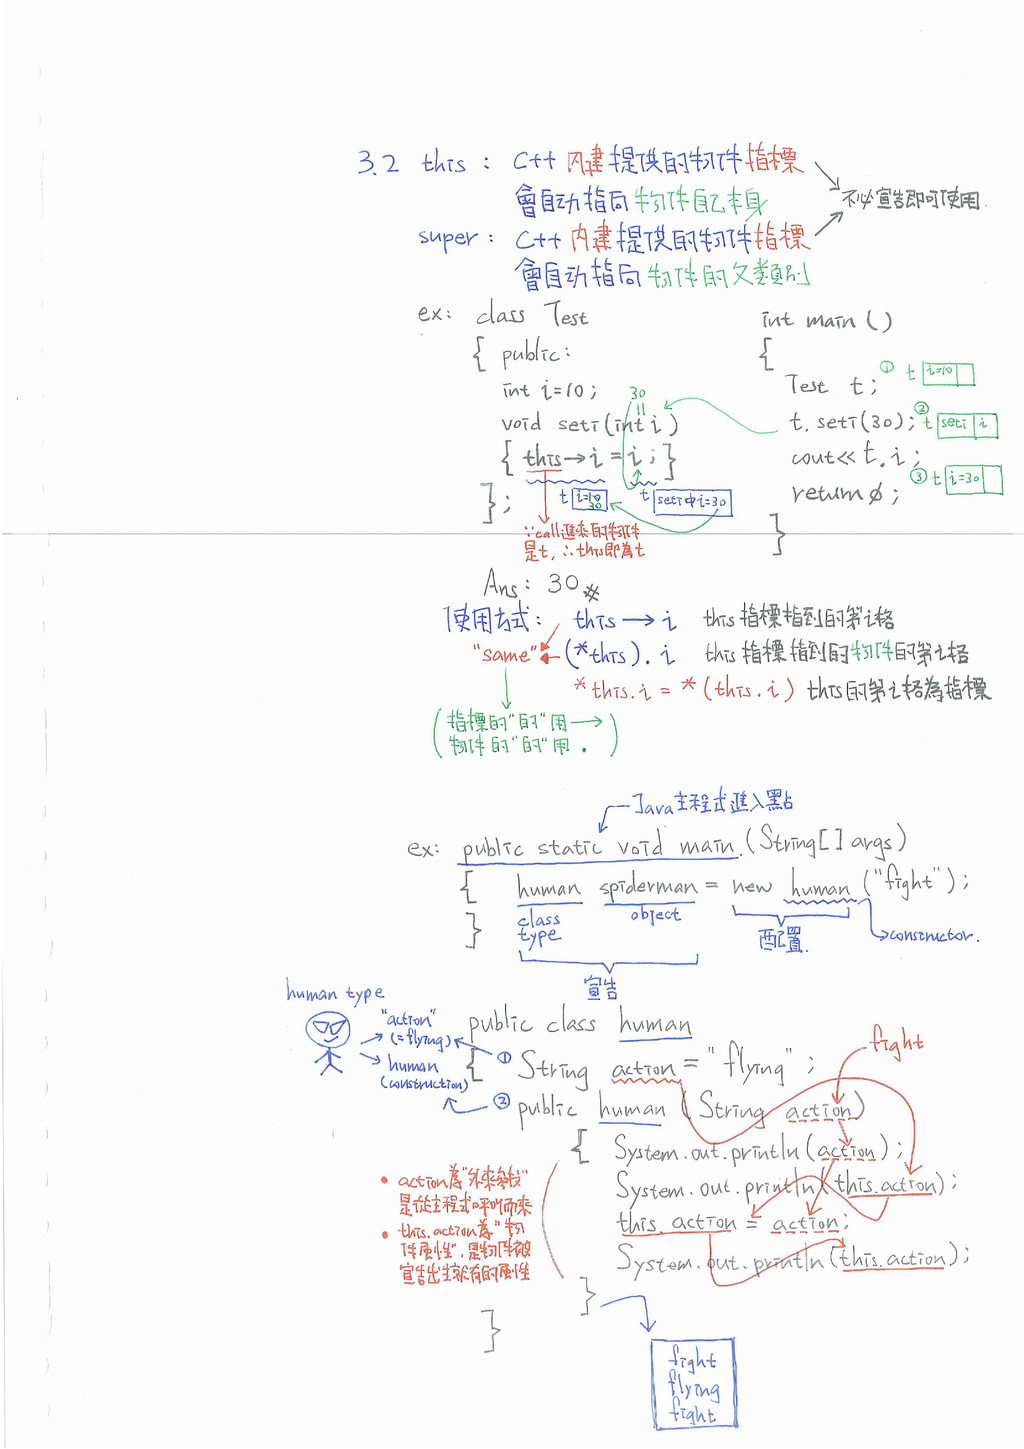 3.2 this : C++ 內建提供的物件指標
會自动指向物件自己本身
不必宣告即可使用.
super : C++ 內建提供的物件指標
會自动指向物件的父類別
ex: class Test
{ public:
int i=10;
void seti(int i)
30
{ this→i = i; }
};
t i=10 30
t seti中i=30
∵call進來的物件
是t, ∴this即為t
int main()
{
Test t; ① t i=10
t.seti(30); ② t seti i
cout<< t.i; ③ t i=30
return 0;
}
Ans: 30 #
使用方式: this → i this指標指到的第i格
"same" (*this).i this指標指到的物件的第i格
*this.i = *(this.i) this的第i格為指標
(指標的"的"用→
物件的"的"用 . )
Java主程式進入點
ex: public static void main (String[] args)
{ human spiderman = new human ("fight");
} class type
object
配置
constructor.
宣告
human type
"action"
(=flying)
human
(construction)
public class human
{ ① String action = "flying";
fight
② public human (String action)
{ System.out.println(action);
System.out.println(this.action);
this.action = action;
System.out.println(this.action);
}
}
• action為"外來參數"
是從主程式呼叫而來
• this.action為"物
件屬性", 是物件被
宣告出生就有的屬性
fight
flying
fight